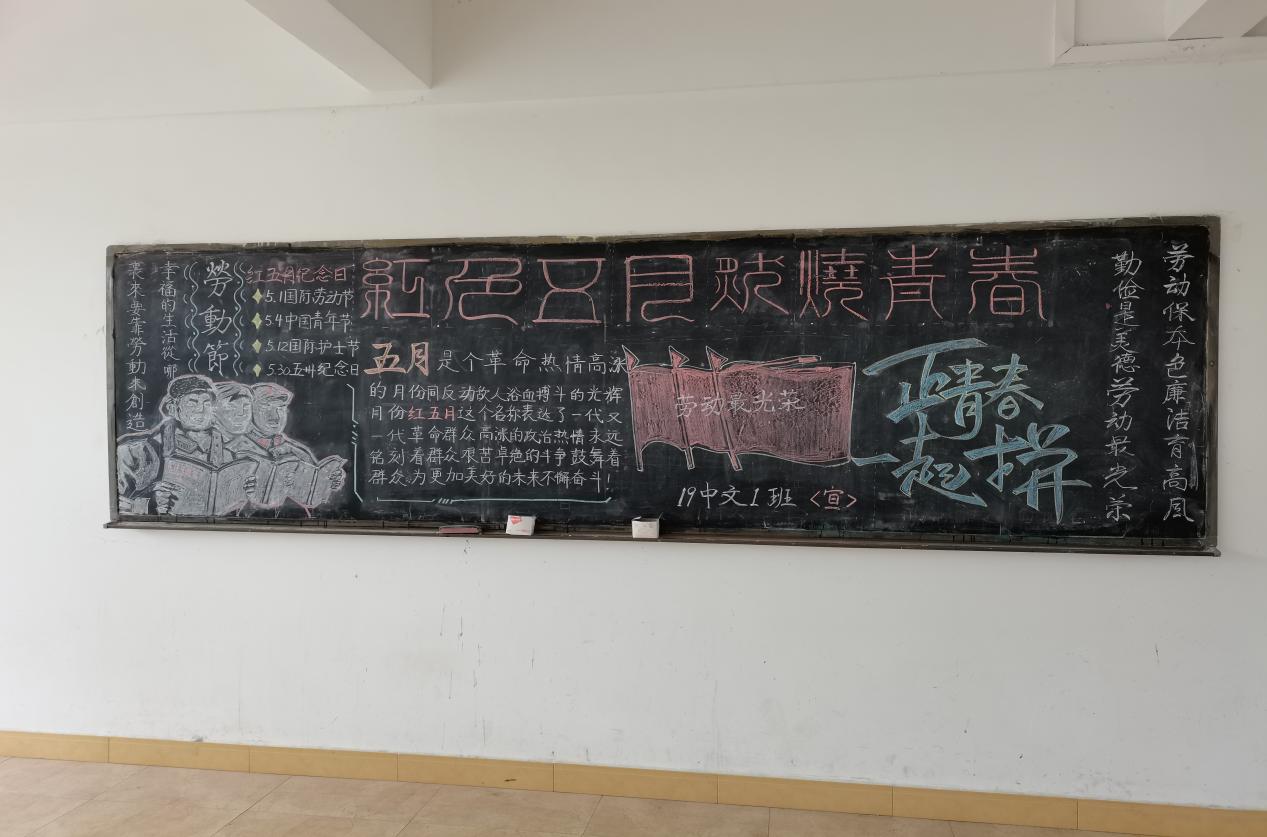 紅色五月 燃燒青春
幸福的生活從哪
裏來要靠勞動來創造
勞動節
红五月纪念日
5.1国际劳动节
5.4中国青年节
5.12国际护士节
5.30五卅纪念日
五月是个革命热情高涨
的月份同反动敌人浴血搏斗的光辉
月份红五月这个名称表达了一代又
一代革命群众高涨的政治热情永远
铭刻着群众艰苦卓绝的斗争鼓舞着
群众为更加美好的未来不懈奋斗!
劳动最光荣
19中文1班<宣>
正青春
一起拼
劳动保本色廉洁育高风
勤俭是美德劳动最光荣